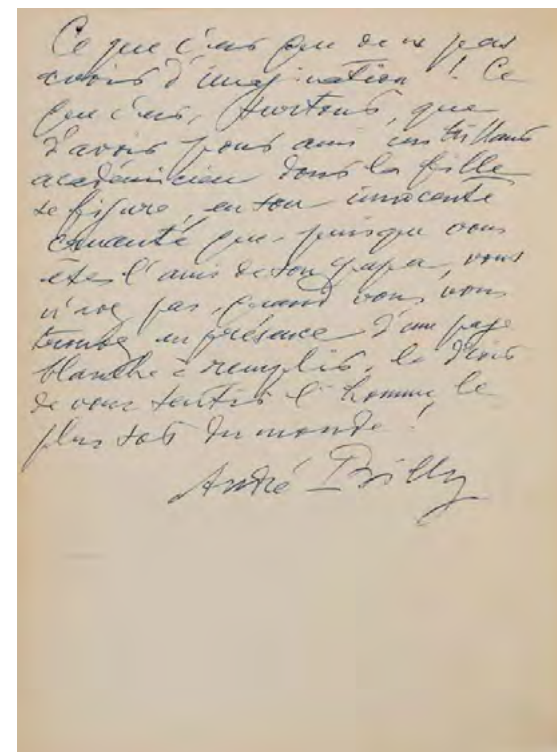 Ce que c'est que de ne pas
avoir d'imagination ! Ce
que c'est, surtout, que
d'avoir pour ami un brillant
académicien dont la fille
se figure, en son innocente
cruauté que, puisque vous
êtes l'ami de son papa, vous
n'avez pas, quand vous vous
trouvez en présence d'une page
blanche à remplir, le droit
de vous sentir l'homme le
plus sot du monde !
André Billy